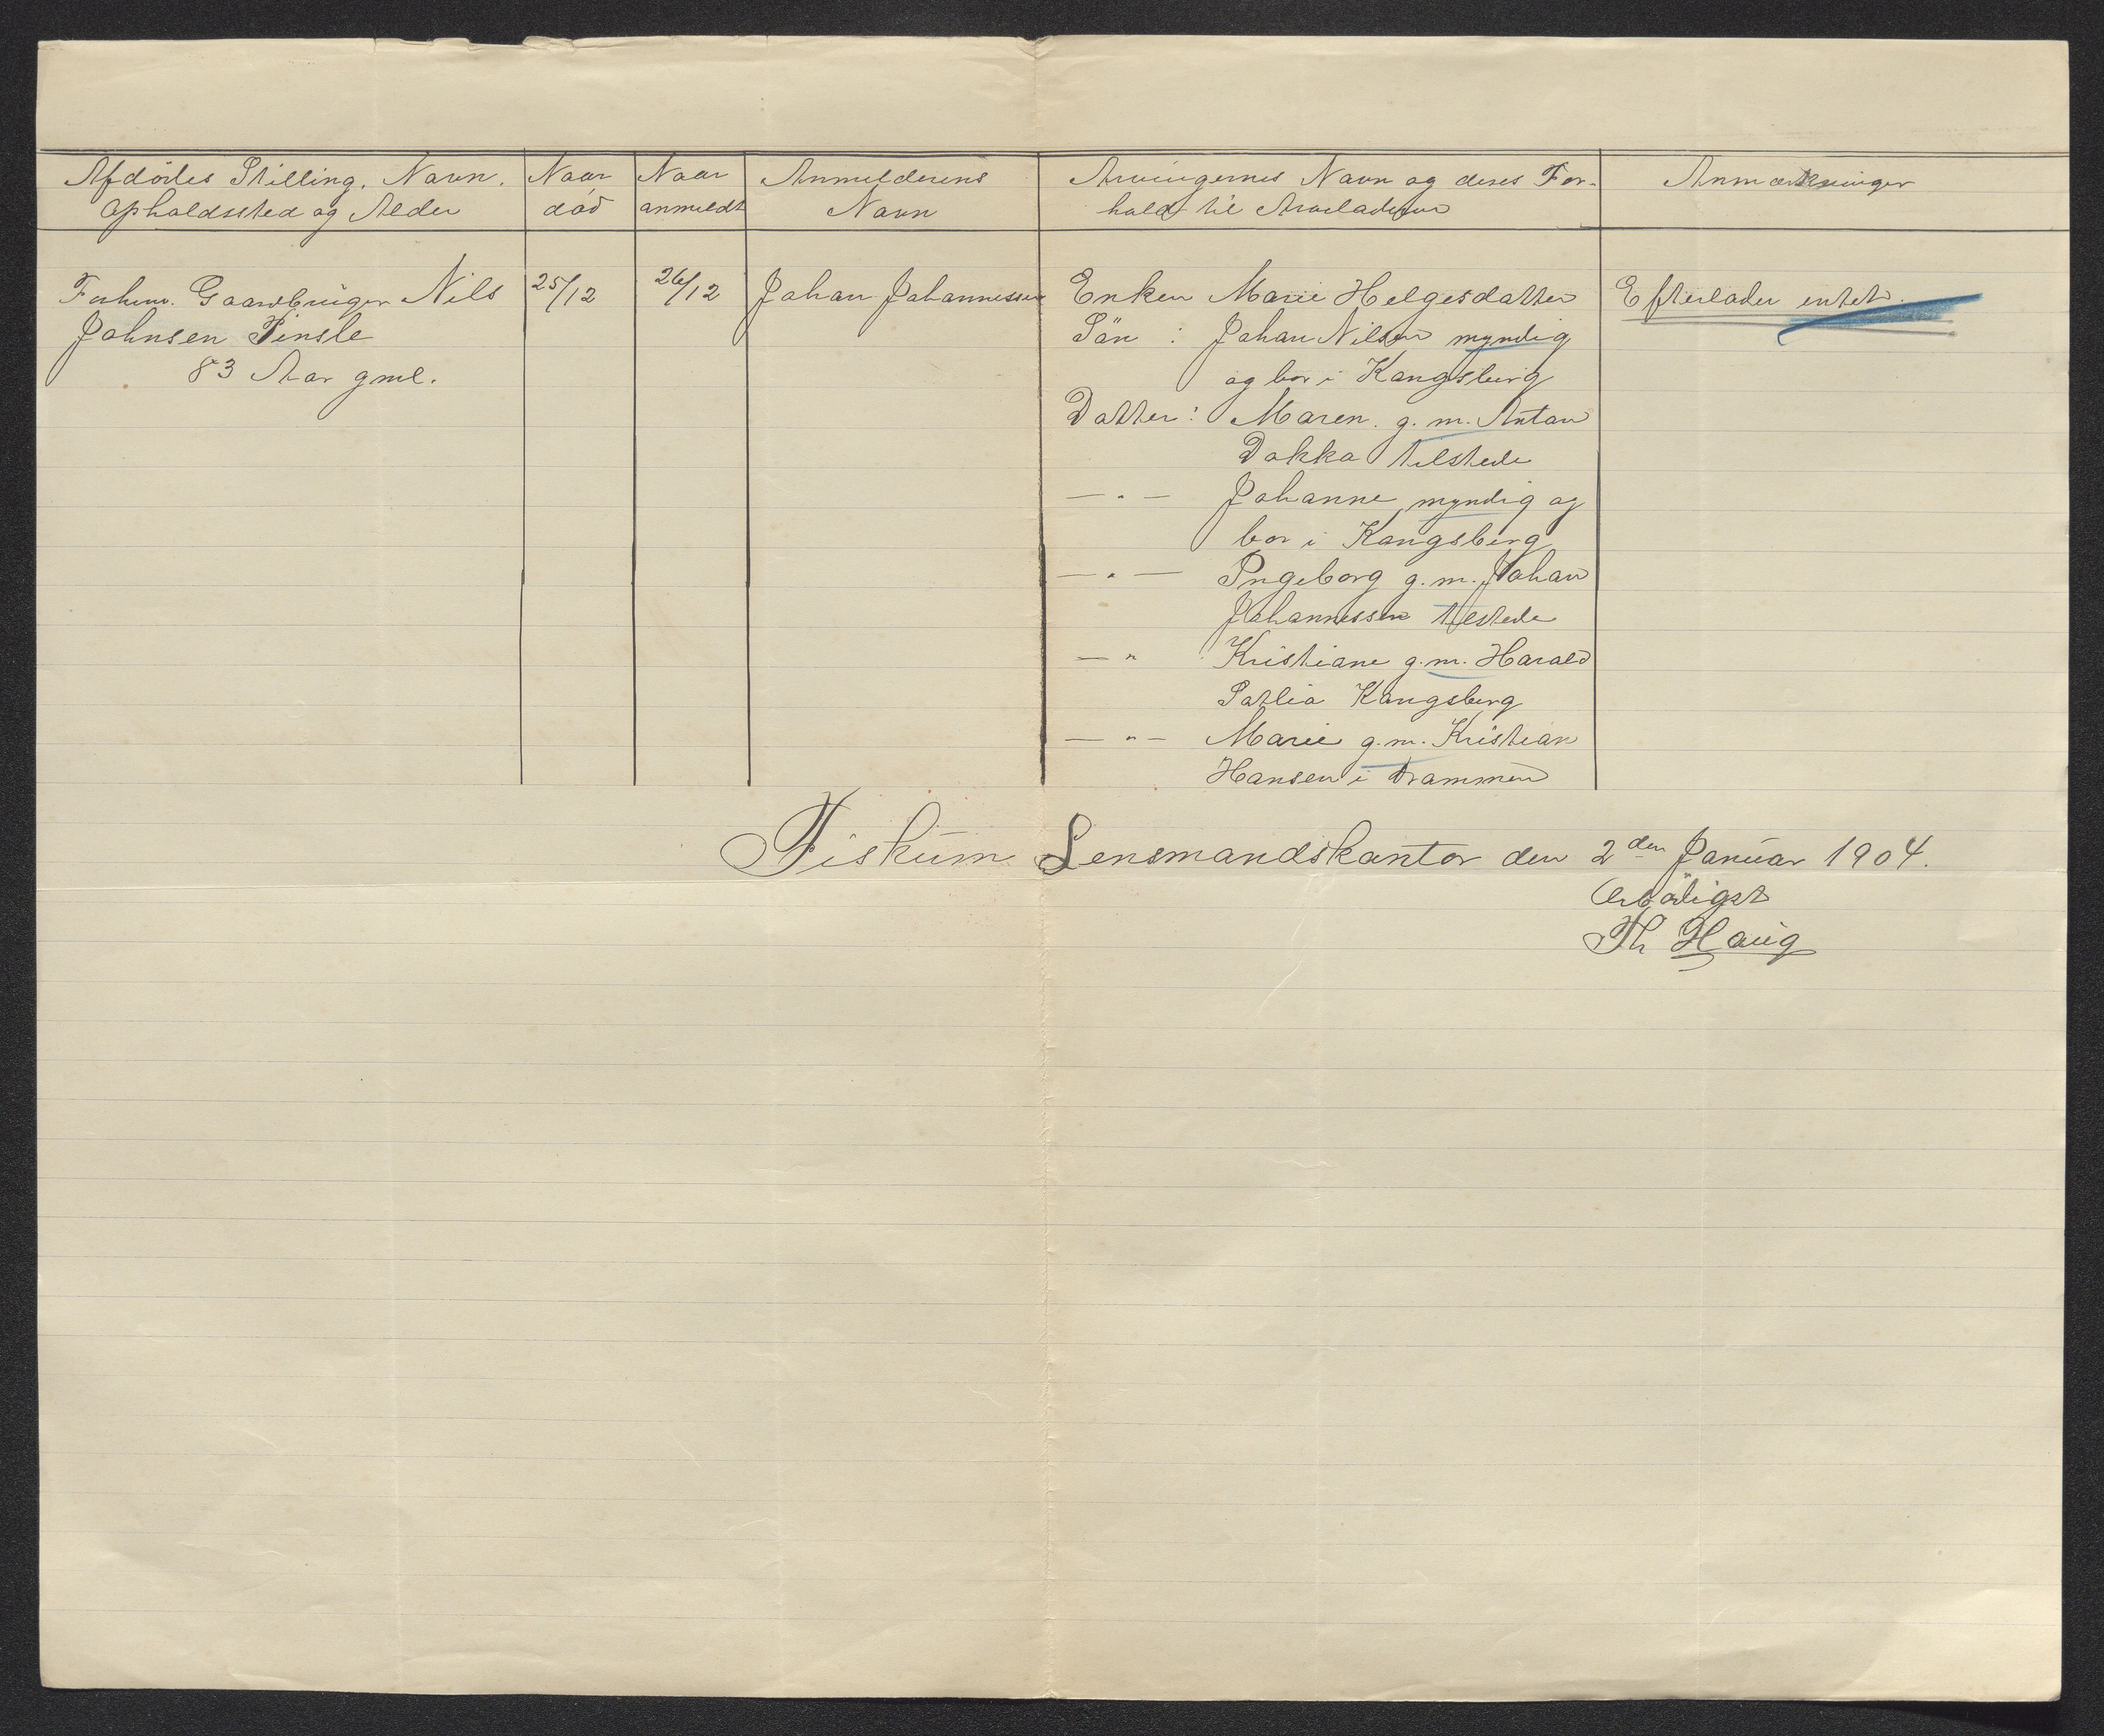 Afdødes Stilling, Navn, Opholdssted og Alder
Naar død
Naar anmeldt
Anmelderens Navn
Arvingernes Navn og deres Forhold til Arveladeren
Anmærkninger
Forhenv. Gaardbruger Nils
Johnsen Tinsle
83 Aar gml.
25/12
26/12
Johan Johannessen
Enken Marie Helgesdatter
Søn : Johan Nilsen myndig
og bor i Kongsberg
Datter : Maren g. m. Anton
Dokka tilstede
— " — Johanne myndig og
bor i Kongsberg
— " — Ingeborg g. m. Johan
Johannessen tilstede
— " Kristiane g. m. Harald
Kongsberg
— " — Marie g. m. Kristian
Hansen i Drammen
Efterlader intet.
Fiskum Lensmandskontor den 2den Januar 1904.
Ærbødigst
Th Haug